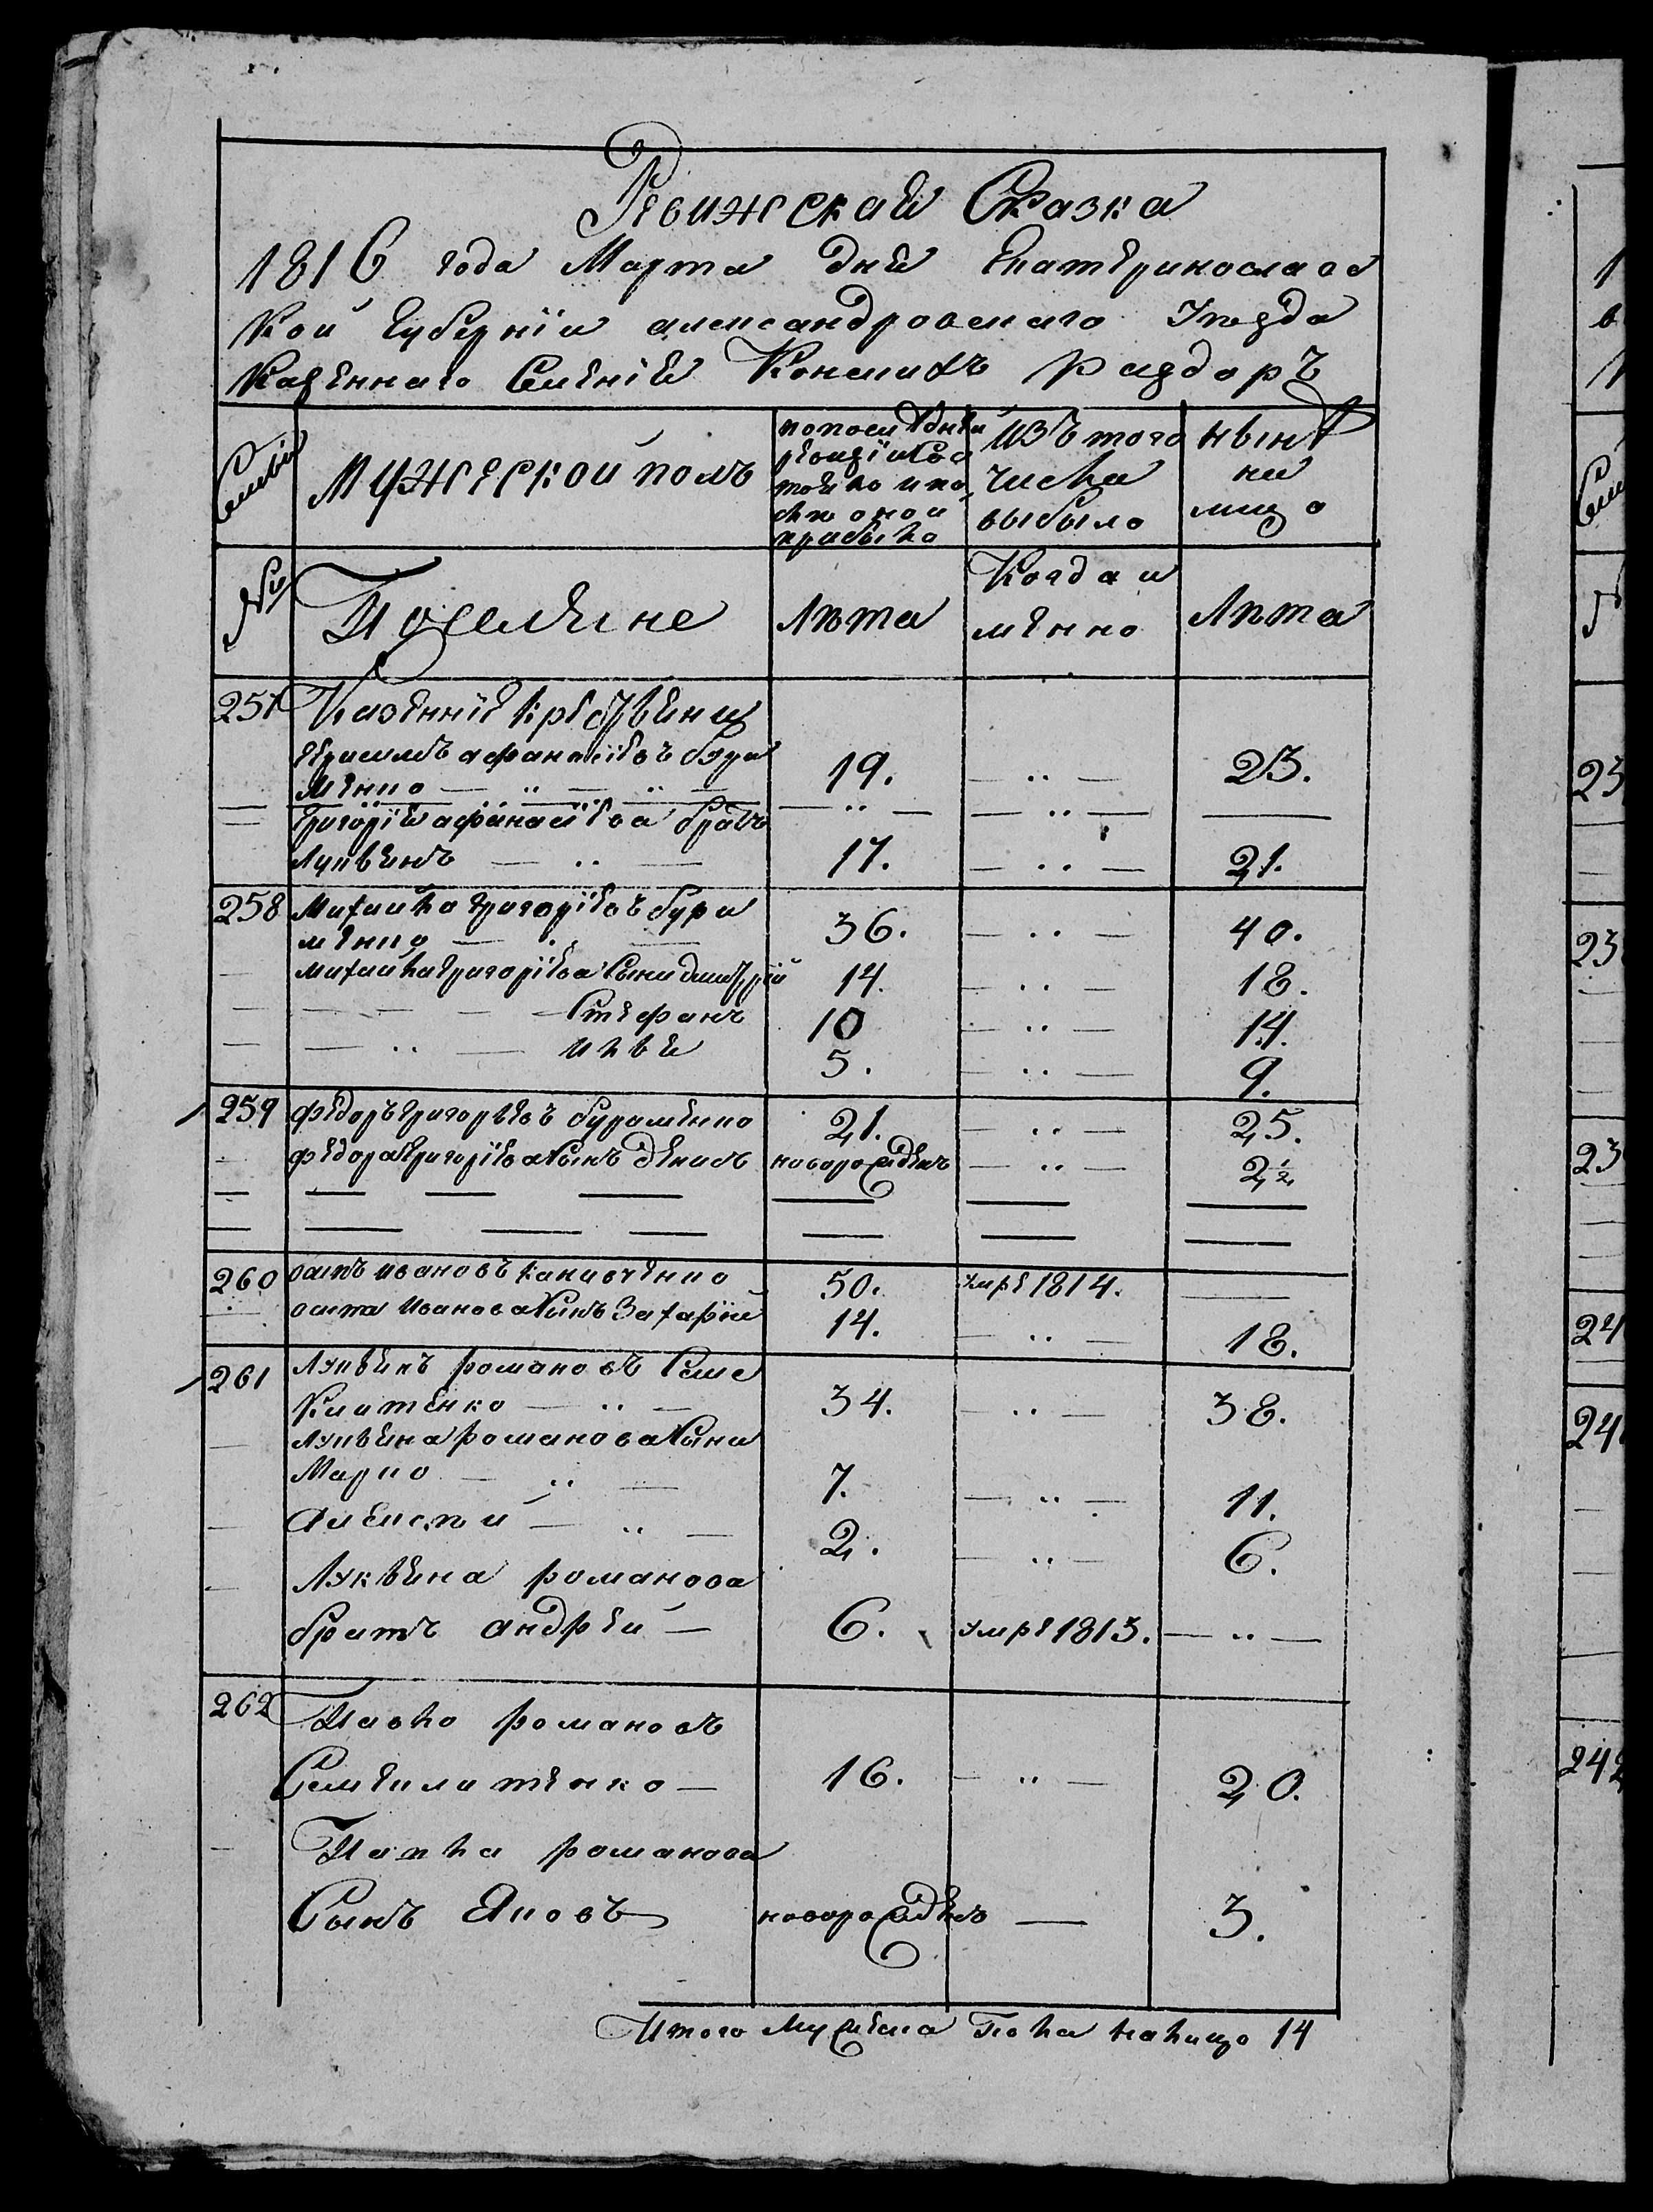 Ревижская Сказка
1816 года Марта дня Екатеринославс
кой губернїи александровскаго уезда
Казеннаго Селенїя Конскихъ Раздоръ
Семьи
мужеской полъ
попоследней ревизїи состояло и после оной прибыло
изъ того числа выбыло
ныне на лицо
№
Поселяне
лета
Когда имянно
лета
257 Казеннїе крестьяни
герасимъ афанасїевъ бура
менко — 19. — 23.
Григорїя афанасїева братъ
лукьянъ — 17. — 21.
258 Михайло григорїевъ бура
менко — 36. — 40.
михайла григорїева сыни дмитрїй 14. — 18.
Стефанъ 10 — 14.
илья 5. — 9.
259 федоръ григорьевъ бураменко 21. — 25.
федора григорїева сынъ денисъ новорожденъ — 2 1/2
260 осипъ ивановъ 50. умре 1814. —
осипа иванова сынъ Захарїй 14. — 18.
261 лукьянъ романовъ Семе
Книтенко — 34. — 38.
лукьяна романова сыни
Марко — 7. — 11.
Алексей — 2. — 6.
лукьяна романова
братъ андрей — 6. умре 1813. —
262 Павло романовъ
16. — 20.
Павла романова
Сынъ Яковъ новорожденъ — 3.
Итого мужеска пола налицо 14